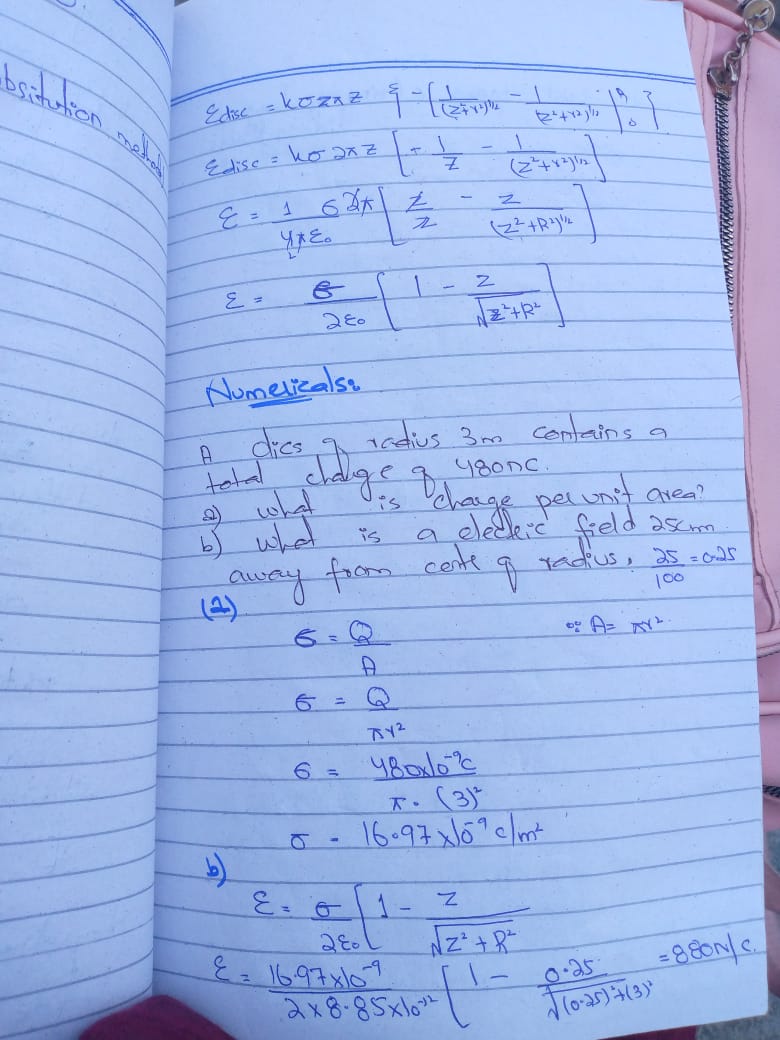 bsitution method
Edisc = kσ2πz { -[1/(z²+r²)^1/2 - 1/(z²+r²)^1/2]|ᴿ₀ }
Edisc = kσ2πz [+ 1/z - 1/(z²+r²)^1/2]
E = 1/4πε₀ σ2π [z/z - z/(z²+R²)^1/2]
E = σ/2ε₀ [1 - z/√z²+R²]
Numericals:
A dics of radius 3m contains a
total charge of 480nc.
a) what is charge per unit area?
b) what is a electric field 25cm
away from cente of radius. 25/100 = 0.25
(a)
σ = Q/A ∵ A = πr²
σ = Q/πr²
σ = 480x10⁻⁹c/π.(3)²
σ = 16.97x10⁻⁹ c/m²
b)
E = σ/2ε₀ [1 - z/√z²+R²
E = 16.97x10⁻⁹/2x8.85x10⁻¹² [1 - 0.25/√(0.25)²+(3)² = 880N/C.